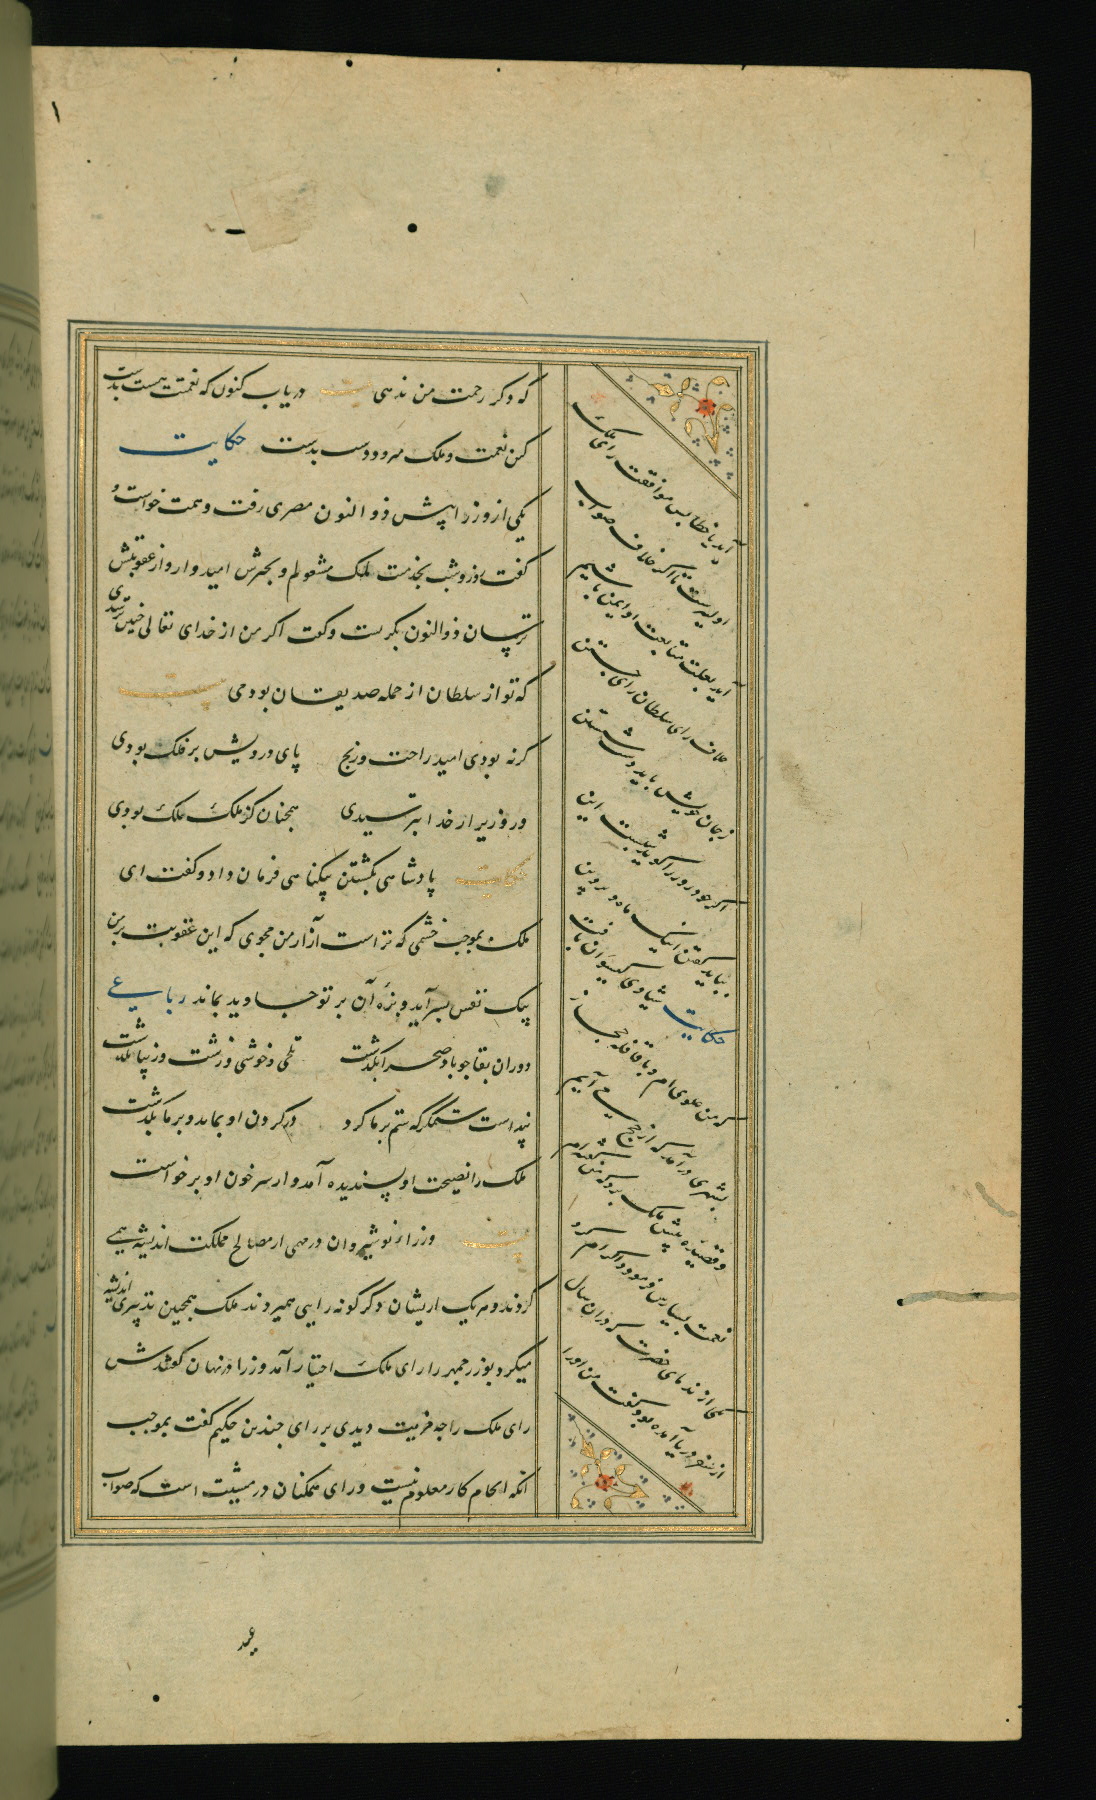 که دگر زحمت من ندهی بیت دریاب کنون که نعمتت هست بدست
کین نعمت و ملک میرود دست بدست حکایت
یکی از وزرا پیش ذوالنون مصری رفت و همت خواست و
گفت روز و شب بخدمت ملک مشغولم و بخیرش امیدوار و از عقوبتش
ترسان ذوالنون بگریست و گفت اگر من از خدای تعالی چنین ترسیدمی
که تو از سلطان از جمله صدیقان بودمی بیت
گر نه بودی امید راحت و رنج پای درویش بر فلک بودی
ور وزیر از خدا بترسیدی همچنان کز ملک ملک بودی
حکایت پادشاهی بکشتن بیگناهی فرمان داد و گفت ای
ملک بموجب خشمی که تراست آزار من مجوی که این عقوبت بر من
بیک نفس بسر آید و بزه آن بر تو جاوید بماند رباعی
دوران بقا چو باد صحرا بگذشت تلخی و خوشی و زشت و زیبا بگذشت
پنداشت ستمگر که ستم بر ما کرد در گردن او بماند و بر ما بگذشت
ملک را نصیحت او پسندیده آمد و از سر خون او برخواست
وزراء نوشیروان در مهمی از مصالح مملکت اندیشه همی
کردند و هر یک از یشان دگر گونه رایی همیزدند ملک همچنین تدبیری اندیشه
میکرد بوزرجمهر را رای ملک اختیار آمد وزرا در نهان گفتندش
رای ملک را چه مزیت دیدی بر رای چندین حکیم گفت بموجب
آنکه انجام کار معلوم نیست و رای همکنان در مشیت است که صواب
آید یا خطا پس موافقت رای ملک
اولیترست تا اگر خلاف صواب
آید بعلت متابعت او ایمن باشیم
خلاف رای سلطان رای جستن
زجان خویش باید دست شستن
اگر خود روز را گوید شبست این
بباید گفتن اینک ماه و پروین
حکایت شیادی گیسوان بافت
که من علوی ام و با قافله حجاز
بشهری درآمد که از حج می آیم
و قصیده پیش ملک برد که من گفته ام
نعمت بسیارش فرمود و اکرام کرد
یکی از ندمای حضرت که دران سال
از سفر دریا آمده بود گفت من او را
عید